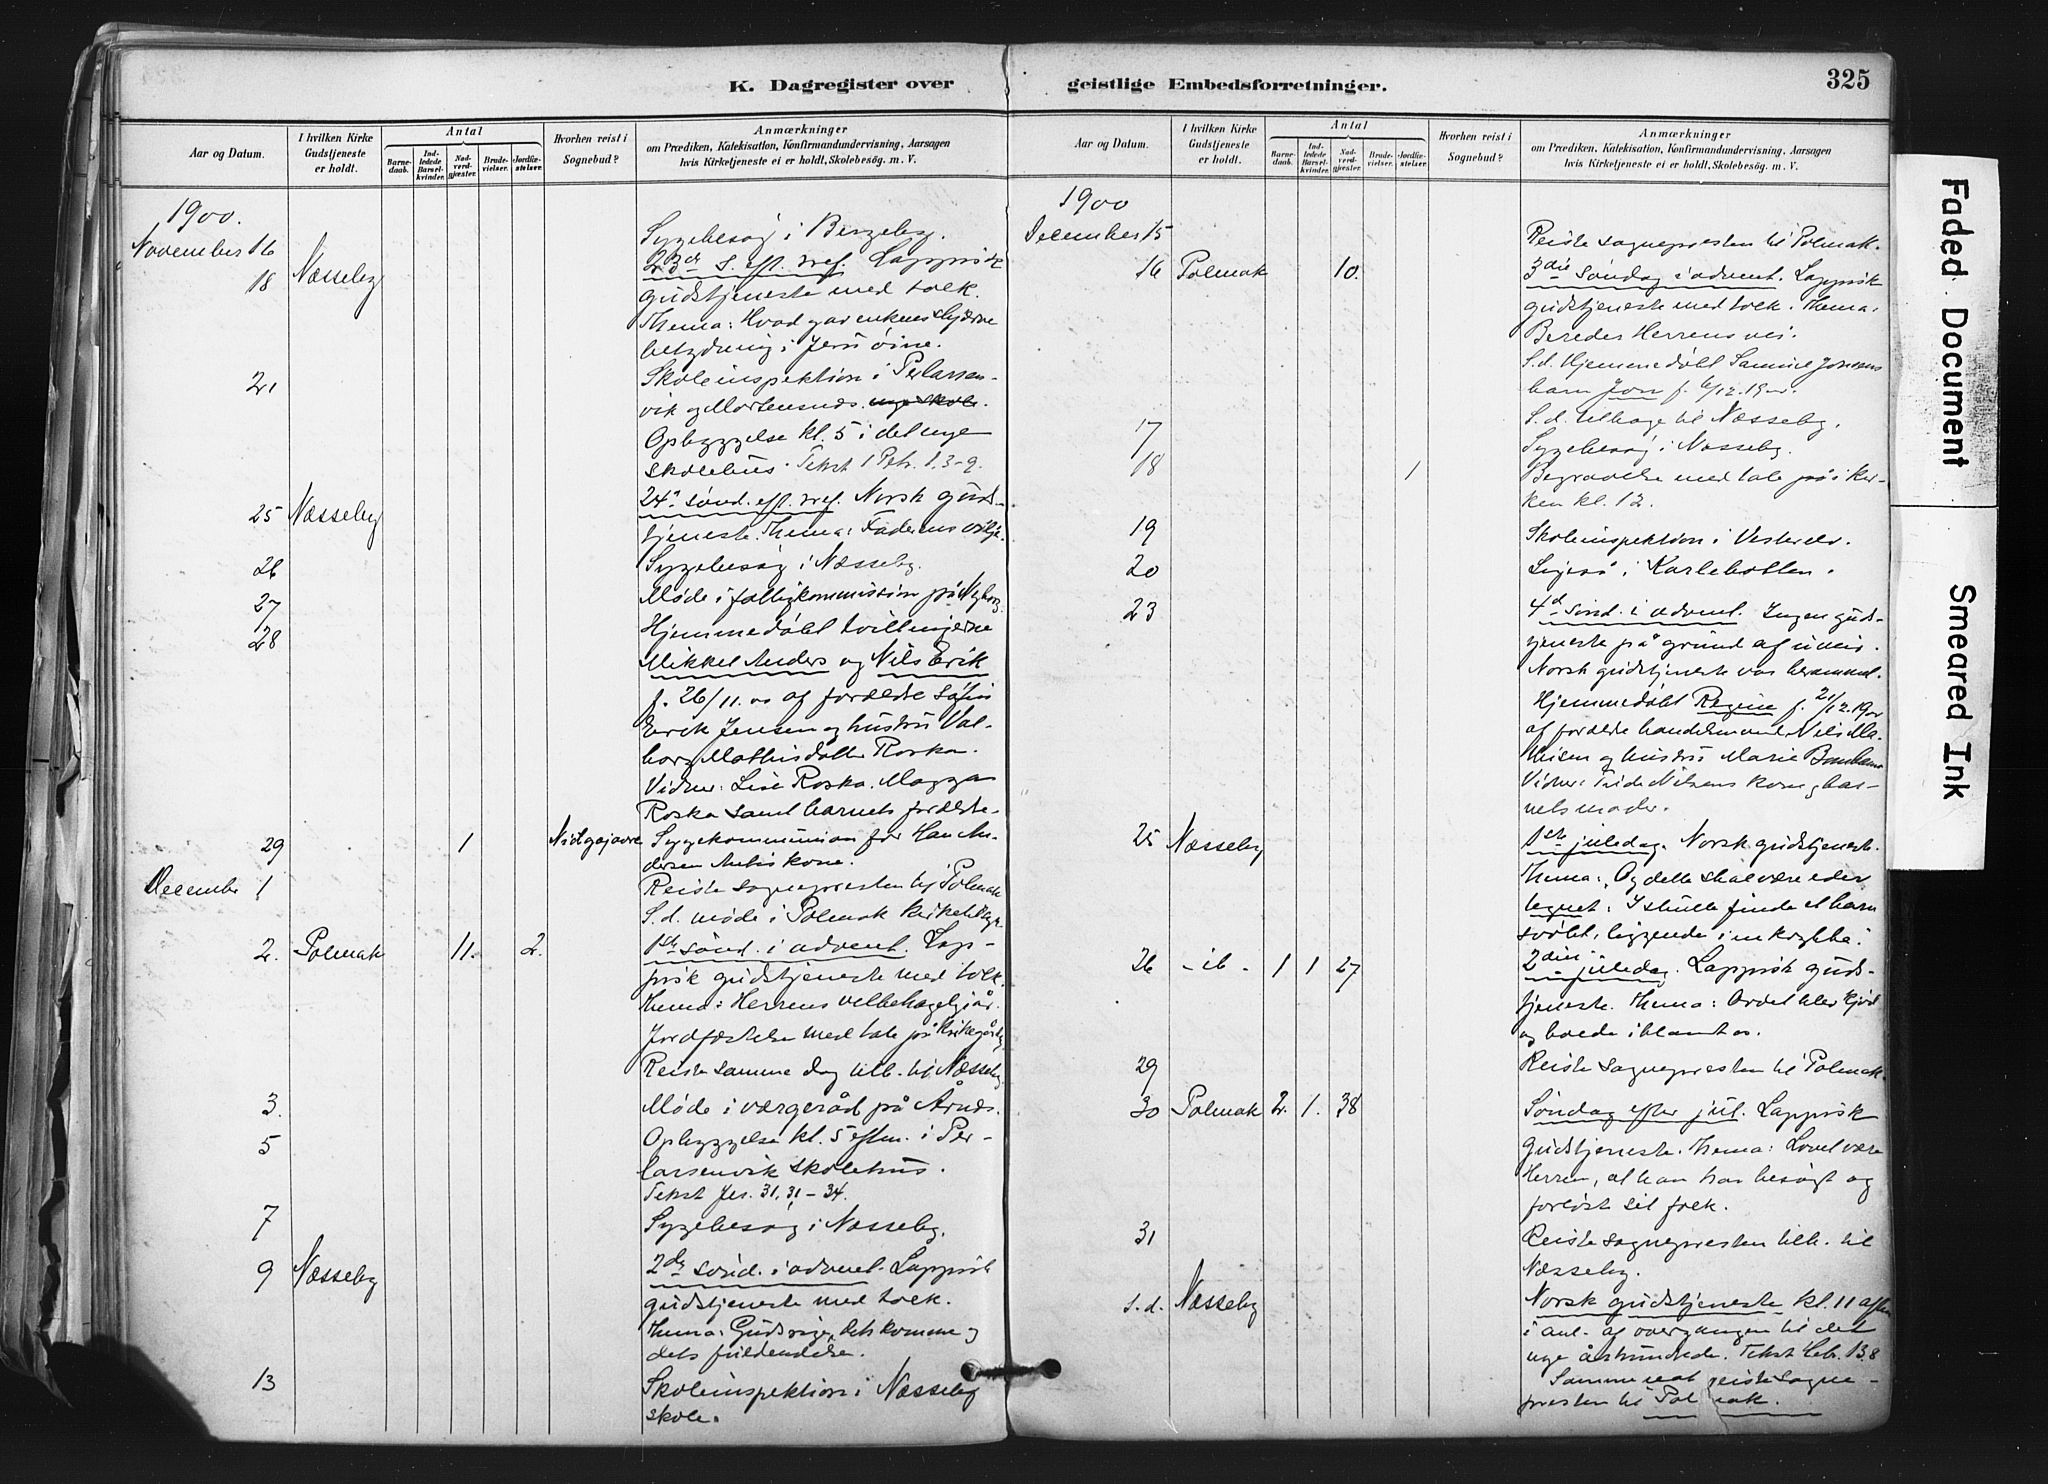 K. Dagregister over
Aar og Datum.
I hvilken Kirke Gudstjeneste er holdt.
Antal
Barnedaab.
Indledede Barselkvinder.
Nadverdgjæster.
Brudevielser.
Jordfæstelser.
Hvorhen reist i Sognebud?
Anmærkninger
om Prædiken, Katekisation, Konfirmandundervisning, Aarsagen
hvis Kirketjeneste ei er holdt, Skolebesög. m. V.
1900.
November 16 Sygebesøg i Bergeby.
18 Næsseby 23de s. eft. tref. Lappisk
gudstjeneste med tolk.
Thema: Hvad gav enkens skjærve
betydning i Jesu øine.
21 Skoleinspektion i Perlarsen-
vik og Mortensnæs. nye skole.
Opbyggelse kl. 5 i det nye
skolehus. Tekst 1 Petr. 1, 3-9.
25 Næsseby 24de sønd. eft. tref. Norsk guds-
tjeneste. Thema: Faderens vilje.
26 Sygebesøg i Næsseby.
27 Møde i fattigkommission på Nyborg.
28 Hjemmedøbt tvillingerne
Mikkel Anders og Nils Erik
f. 26/11. 00 af forældre
Erik Jensen og hustru Val-
borg Mathisdatter Roska.
Vidner: Lise Roska, Magga
Roska samt barnets forældre.
29 1 Nidgajavre Sygekommunion for Han An-
dersen kone.
December 1 Reiste sognepresten til Polmak
S.d. møde i Polmak kirketilsyn
2. Polmak 11. 2. 1ste sønd. i advent. Lap-
pisk gudstjeneste med tolk.
Thema: Herrens velbehagelig år.
Jordfæstelse med tale på kirkegården
Reiste samme dag tilb. til Næsseby.
3. Møde i værgeråd på Årnes.
5 Opbyggelse kl. 5 eftm. i Per-
larsenvik skolehus.
Tekst Jer. 31, 31-34.
7 Sygebesøg i Næsseby.
9 Næsseby 2den sønd. i advent. Lappisk
gudstjeneste med tolk.
Thema: Guds rige, dets komme og
dets fuldendelse.
13 Skoleinspektion i Næsseby
skole.
geistlige Embedsforretninger.
325
Aar og Datum.
I hvilken Kirke Gudstjeneste er holdt.
Antal
Barnedaab.
Indledede Barselkvinder.
Nadverdgjæster.
Brudevielser.
Jordfæstelser.
Hvorhen reist i Sognebud?
Anmærkninger
om Prædiken, Katekisation, Konfirmandundervisning, Aarsagen
hvis Kirketjeneste ei er holdt, Skolebesög. m. V.
1900
December 15 Reiste sognepresten til Polmak.
16 Polmak 10. 3die søndag i advent. Lappisk
gudstjeneste med tolk. Thema:
Bereder Herrens vei.
S.d. hjemmedøbt Samuel Jonsens
barn Jon f. 6/12. 1900.
17 S.d. tilbage til Næsseby.
Sygebesøg i Næsseby.
18 1 Begravelse med tale på i kir-
ken kl. 12.
19 Skoleinspektion i Vesterelv.
20 Ligeså i Karlebotten.
23 4d sønd. i advent. Ingen guds-
tjeneste på grund af uveir.
Norsk gudstjeneste var berammet.
Hjemmedøbt Regine f. 21/12. 1900
af forældre handelsmand Nils Ma-
thisen og hustru Marie
Vidner: Nilsens kone og bar-
nets moder.
25 Næsseby 1ste juledag. Norsk gudstjeneste.
Thema: Og dette skal være eder
tegnet: I skulle finde et barn
svøbt, liggende i en krybbe.
26 - ib - 1 1 27 2den juledag. Lappisk guds-
tjeneste. Thema: Ordet blev kjød
og boede iblandt os.
29 Reiste sognepresten til Polmak.
30 Polmak 2. 1. 38 Søndag efter jul. Lappisk
gudstjeneste. Thema: Lovet være
Herren, at han har besøgt og
forløst sit folk.
31 Reiste sognepresten tilb. til
Næsseby.
S.d. Næsseby Norsk gudstjeneste kl. 11 aften
i anl. af overgangen til det
nye århundrede. Tekst Heb. 13,8
Samme nat reiste sogne-
presten til Polmak.
Faded Document
Smeared Ink